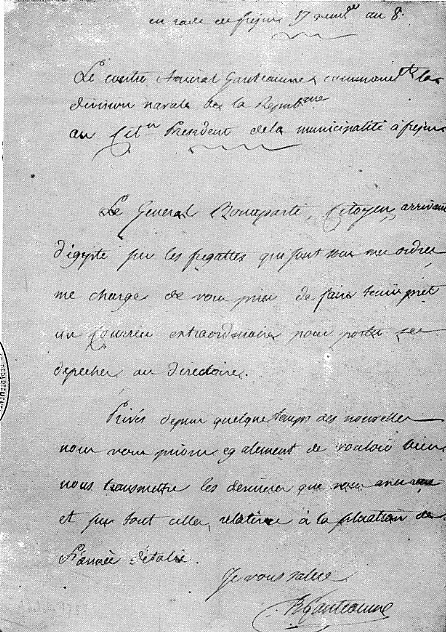 en rade de fréjus 17 vend.re an 8.
Le contre Amiral Ganteaume commandt. la
division navale de la Republique
au Cit.en President de la municipalité à fréjus
Le General Bonaparte, Citoyen, arrivant
d'égypte sur les fregattes qui sont sous mes ordres
me charge de vous prier de faire tenir prêt
un Courrier extraordinaire pour porter ses
depeches au directoire.
Privés depuis quelque temps des nouvelles
nous vous prions egalement de vouloir bien
nous transmettre les dernieres que vous avez
et sur tout celles relatives à la situation de
l'armée d'italie.
Je vous salue
H Ganteaume